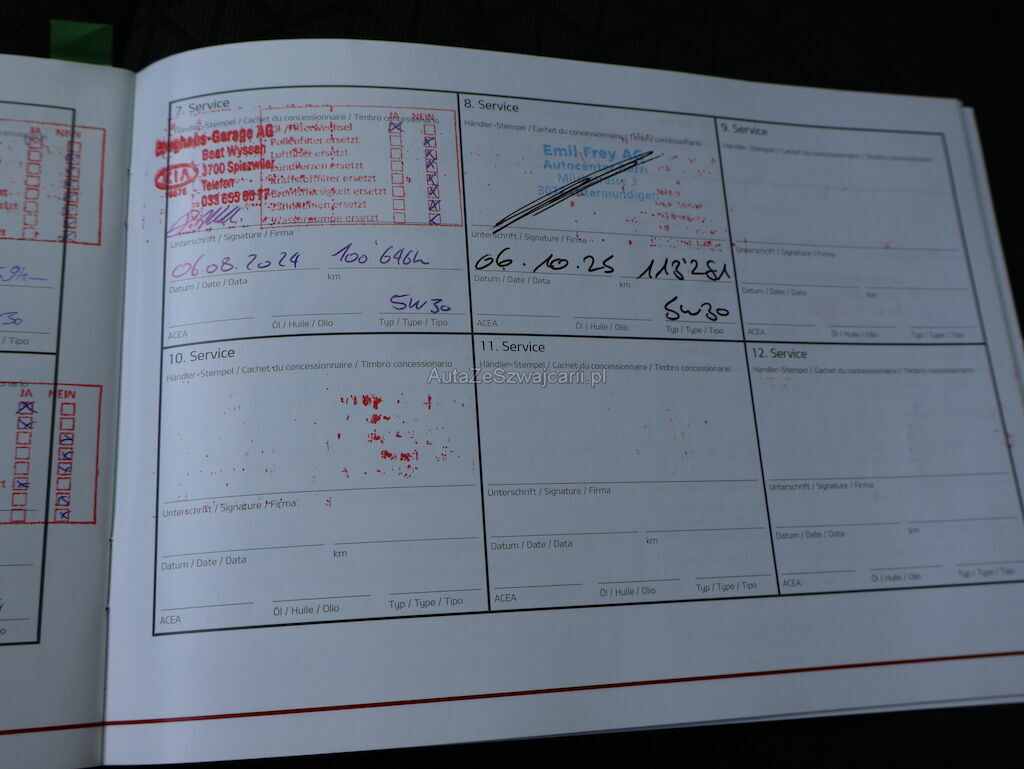 7. Service
Händler-Stempel / Cachet du concessionnaire / Timbro concessionario
JA NEIN
Beat Wyssen
3700 Spiezwiler
Telefon
KIA
Öl-/Filterwechsel
Pollenfilter ersetzt
Luftfilter ersetzt
Zündkerzen ersetzt
Kraftstofffilter ersetzt
Bremsflüssigkeit ersetzt
Zahnriemen ersetzt
Wasserpumpe ersetzt
Unterschrift / Signature / Firma
06.08.2024 100'646
Datum / Date / Data km
5W30
ACEA Öl / Huile / Olio Typ / Type / Tipo
8. Service
Händler-Stempel / Cachet du concessionnaire / Timbro concessionario
Emil Frey AG
Unterschrift / Signature / Firma
06.10.25 113'281
Datum / Date / Data km
5W30
ACEA Öl / Huile / Olio Typ / Type / Tipo
9. Service
Händler-Stempel / Cachet du concessionnaire / Timbro concessionario
Unterschrift / Signature / Firma
Datum / Date / Data km
ACEA Öl / Huile / Olio Typ / Type / Tipo
10. Service
Händler-Stempel / Cachet du concessionnaire / Timbro concessionario
Unterschrift / Signature / Firma
Datum / Date / Data km
ACEA Öl / Huile / Olio Typ / Type / Tipo
11. Service
Händler-Stempel / Cachet du concessionnaire / Timbro concessionario
Unterschrift / Signature / Firma
Datum / Date / Data km
ACEA Öl / Huile / Olio Typ / Type / Tipo
12. Service
Händler-Stempel / Cachet du concessionnaire / Timbro concessionario
Unterschrift / Signature / Firma
Datum / Date / Data km
ACEA Öl / Huile / Olio Typ / Type / Tipo
JA NEIN
AutaZeSzwajcarii.pl